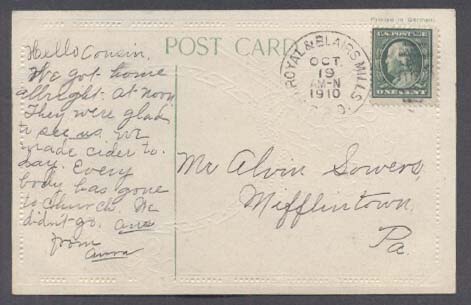 Printed in Germany
POST CARD
ROYAL & BLAIRS MILLS
OCT.
19
AM-N
1910
ONE CENT
Hello Cousin,
We got home
allright. at noon
They were glad
to see us. we
made cider to-
day. Every
body has gone
to Church. We
didn't go.
from
Mr Alvin Sowers,
Mifflintown,
Pa.